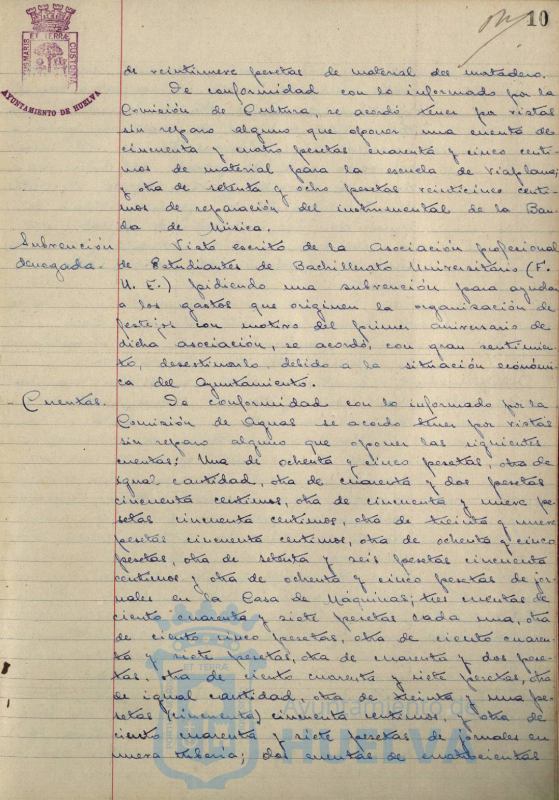 10
PORTUS MARIS ET TERRÆ CUSTODIA
AYUNTAMIENTO DE HUELVA
de veintinueve pesetas de material del matadero.
De conformidad con lo informado por la
Comisión de Cultura, se acordó tener por vistas
sin reparo alguno que oponer una cuenta de
cincuenta y cuatro pesetas cuarenta y cinco centi-
mos de material para la escuela de Viaplana;
y otra de setenta y ocho pesetas veinticinco centi-
mos de reparación del instrumental de la Ban-
da de Música.
Subvención
denegada.
Visto escrito de la Asociación profesional
de Estudiantes de Bachillerato Universitario (F.
U. E.) pidiendo una subvención para ayudar
a los gastos que originen la organización de
festejos con motivo del primer aniversario de
dicha asociación, se acordó, con gran sentimien-
to, desestimarlo, debido a la situación económi-
ca del Ayuntamiento.
- Cuentas.
De conformidad con lo informado por la
Comisión de Aguas se acordo tener por vistas
sin reparo alguno que oponer las siguientes
cuentas: Una de ochenta y cinco pesetas, otra de
igual cantidad, otra de cuarenta y dos pesetas
cincuenta centimos, otra de cincuenta y nueve pe-
setas cincuenta centimos, otra de treinta y nueve
pesetas cincuenta centimos, otra de ochenta y cinco
pesetas, otra de setenta y seis pesetas cincuenta
centimos y otra de ochenta y cinco pesetas de jor-
nales en la Casa de Máquinas; tres cuentas de
ciento cuarenta y siete pesetas cada una, otra
de ciento cinco pesetas, otra de ciento cuaren-
ta y siete pesetas, otra de cuarenta y dos pese-
tas, otra de ciento cuarenta y siete pesetas, otra
de igual cantidad, otra de treinta y una pe-
setas (cincuenta) cincuenta centimos, y otra de
ciento cuarenta y siete pesetas de jornales en
nueva tubería; dos cuentas de cuatrocientas
Ayuntamiento de
HUELVA